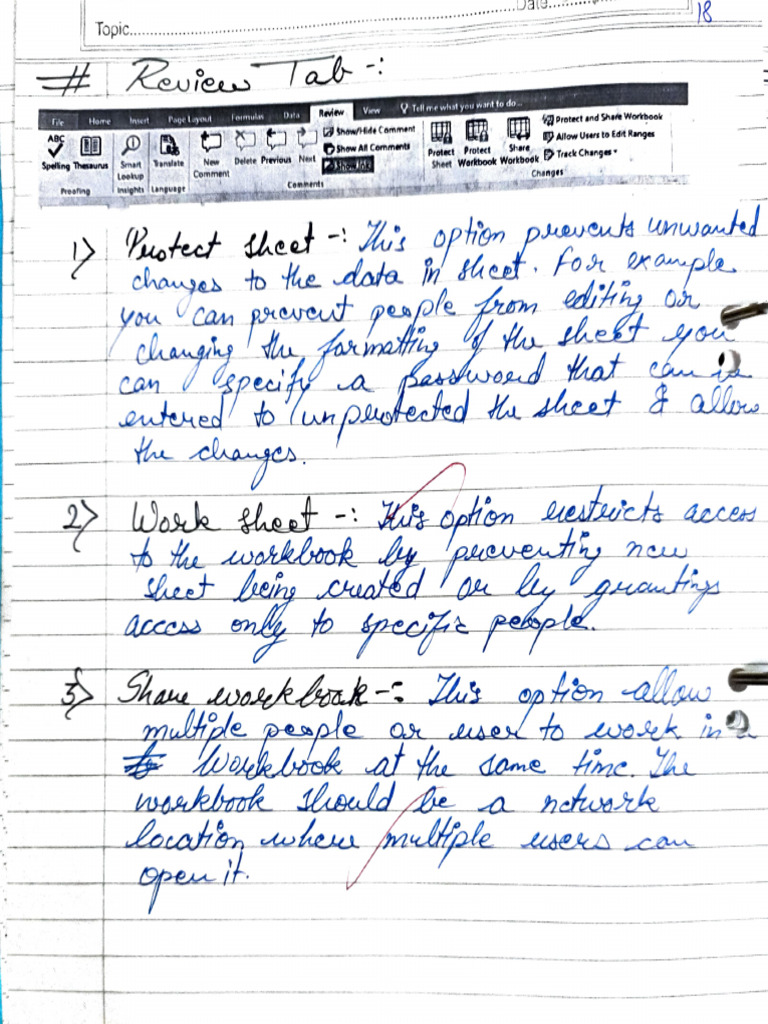 Date..........
18
Topic..........
# Review Tab -:
File Home Insert Page Layout Formulas Data Review View Tell me what you want to do...
ABC
Spelling Thesaurus
Proofing
Smart Lookup
Insights
Translate
Language
New Comment
Delete Previous Next
Show/Hide Comment
Show All Comments
Show Ink
Comments
Protect Sheet
Protect Workbook
Share Workbook
Protect and Share Workbook
Allow Users to Edit Ranges
Track Changes
Changes
1) Protect sheet -: This option prevents unwanted
changes to the data in sheet. For example
you can prevent people from editing or
changing the formatting of the sheet you
can specify a password that can is
entered to unprotected the sheet & allow
the changes.
2) Work sheet -: This option restricts access
to the workbook by preventing new
sheet being created or by grantings
access only to specific people.
3) Share workbook -: This option allow
multiple people or user to work in a
Workbook at the same time. The
workbook should be a network
location where multiple users can
open it.